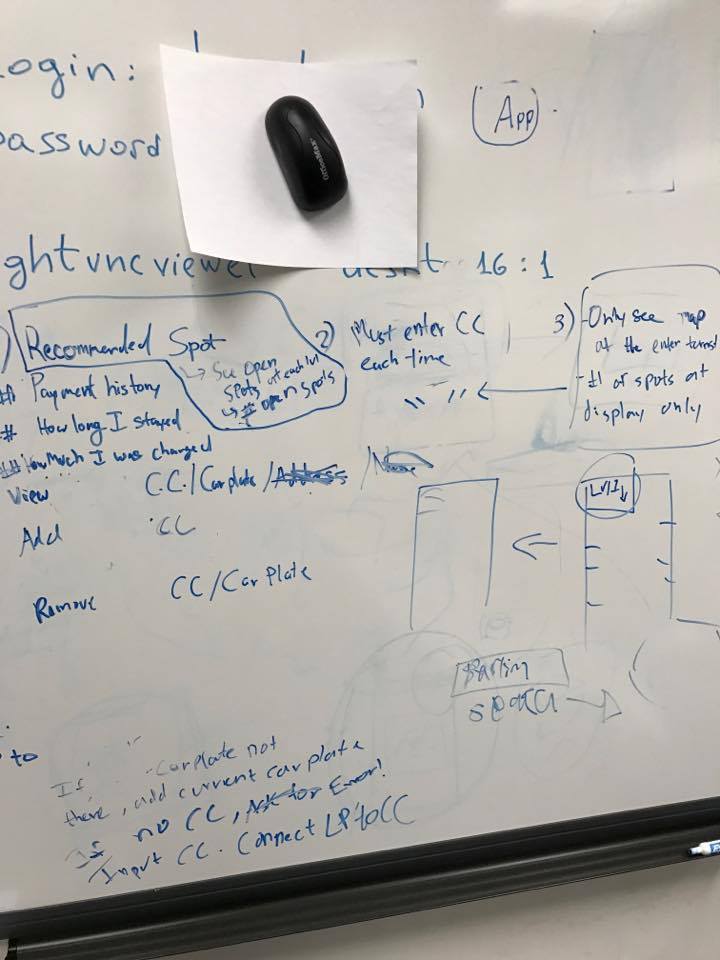 ogin:
password
App
OfficeMax
ghtvncviewer 16:1
Recommended Spot
→ See open
spots at each lvl
↳ # open spots
# Payment history
# How long I stayed
## How much I was charged
2) Must enter CC
each time
" "
3) - Only see map
at the enter
- # of spots at
display only
View CC/Carplate/Address/Name
Add CC
Remove CC/Car Plate
LVL1↓
Parking
search
to
If carplate not
there, add current carplate
If no CC, Ask for Error!
Input CC. Connect LP to CC